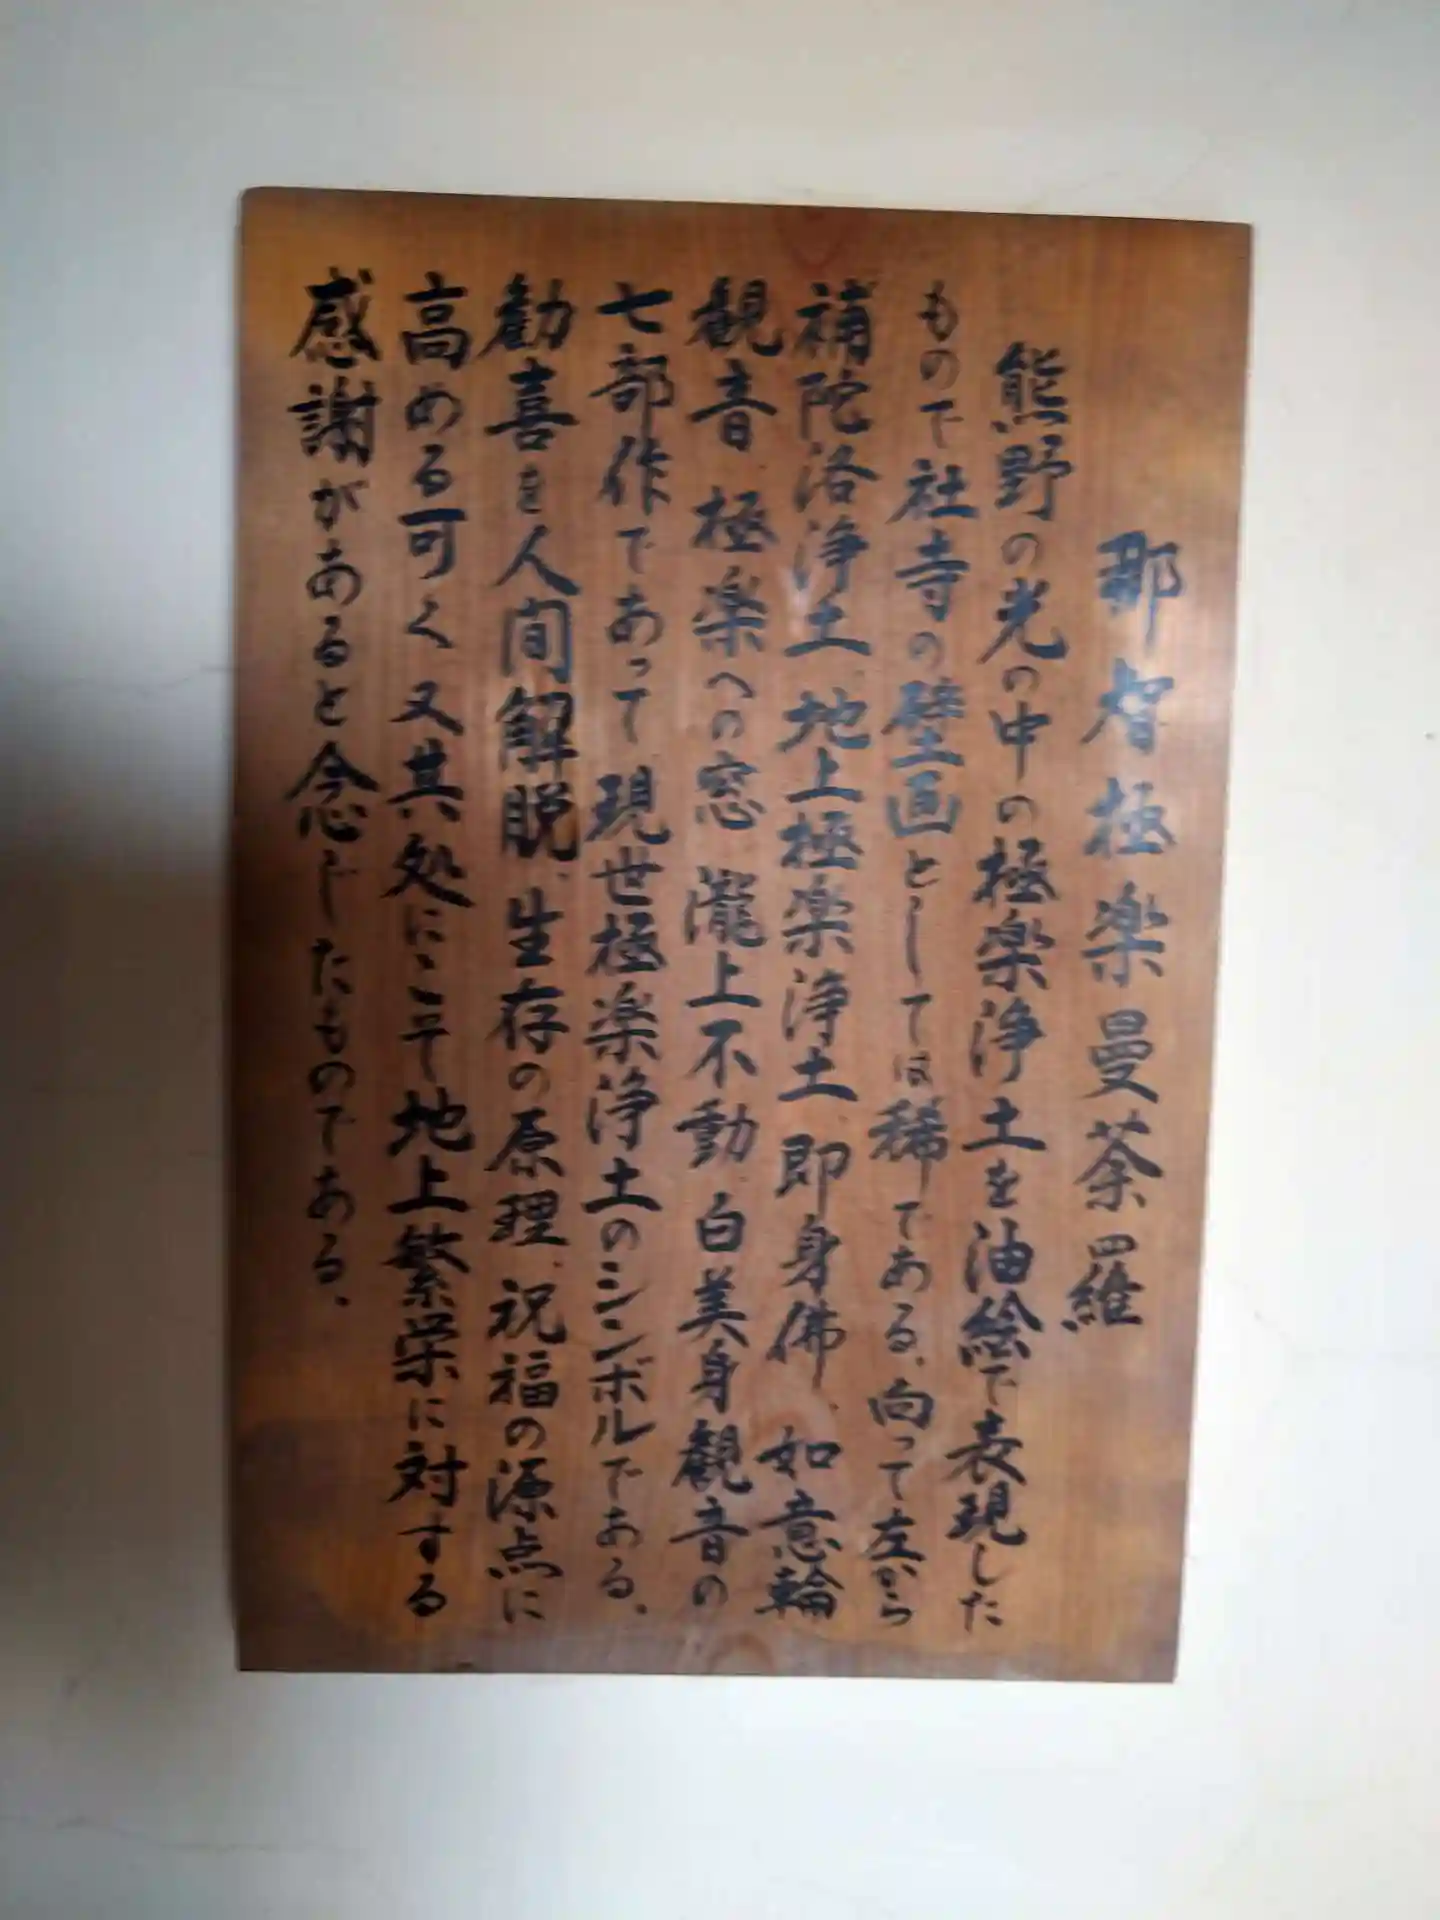 那智極楽曼荼羅
熊野の光の中の極楽浄土を油絵で表現した
もので社寺の壁画としては稀である、向って左から
補陀洛浄土、地上極楽浄土、即身佛、如意輪
観音、極楽への窓、瀧上不動、白美身観音の
七部作であって、現世極楽浄土のシンボルである、
勧喜を人間解脱、生存の原理、祝福の源点に
高める可く又其処にこそ地上繁栄に対する
感謝があると念じたものである、